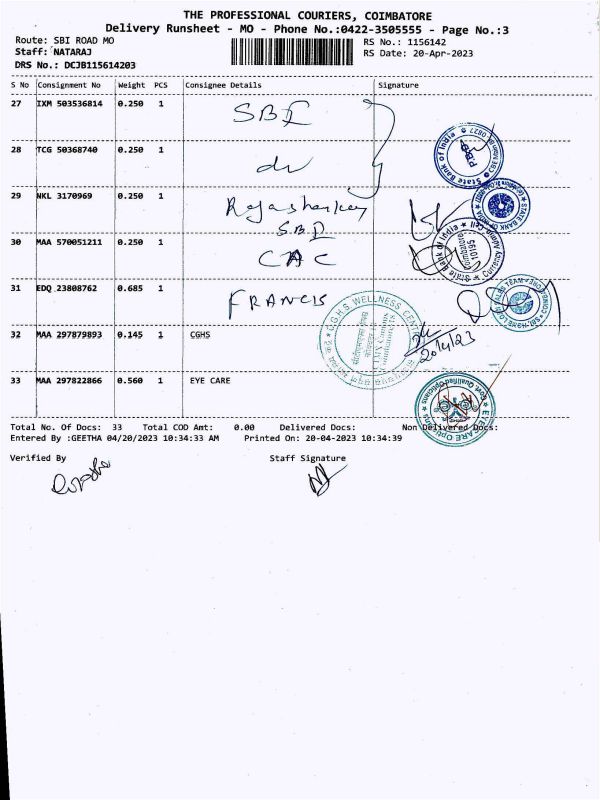 THE PROFESSIONAL COURIERS, COIMBATORE
Delivery Runsheet - MO - Phone No.:0422-3505555 - Page No.:3
Route: SBI ROAD MO
RS No.: 1156142
Staff: NATARAJ
RS Date: 20-Apr-2023
DRS No.: DCJB115614203
S No Consignment No Weight PCS Consignee Details Signature
27 IXM 503536814 0.250 1 SBI
28 TCG 50368740 0.250 1
29 NKL 3170969 0.250 1 Rajashankar
SBI
30 MAA 570051211 0.250 1 CAC
31 EDQ 23808762 0.685 1 FRANCIS
32 MAA 297879893 0.145 1 CGHS
20/4/23
33 MAA 297822866 0.560 1 EYE CARE
State Bank of India
STATE BANK OF INDIA
State Bank of India
Currency Admn. Cell
10195
Coimbatore
C.G.H.S. WELLNESS CENTRE
EYE CARE Opticians
Govt. Qualified Opticians
Total No. Of Docs: 33 Total COD Amt: 0.00 Delivered Docs: Non Delivered Docs:
Entered By :GEETHA 04/20/2023 10:34:33 AM Printed On: 20-04-2023 10:34:39
Verified By Staff Signature